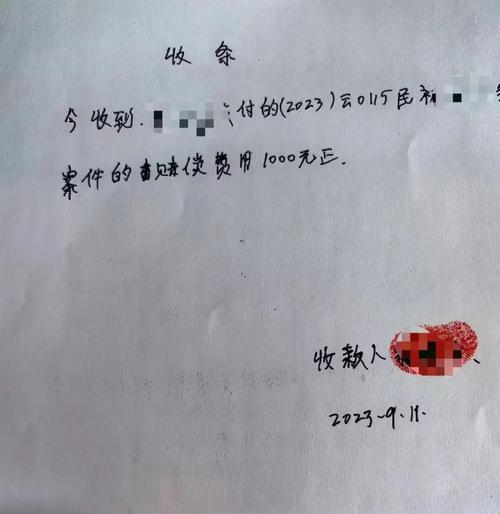 收条
今收到. 付的(2023)云0115民初
案件的赔偿费用1000元正.
收款人
2023-9.11.